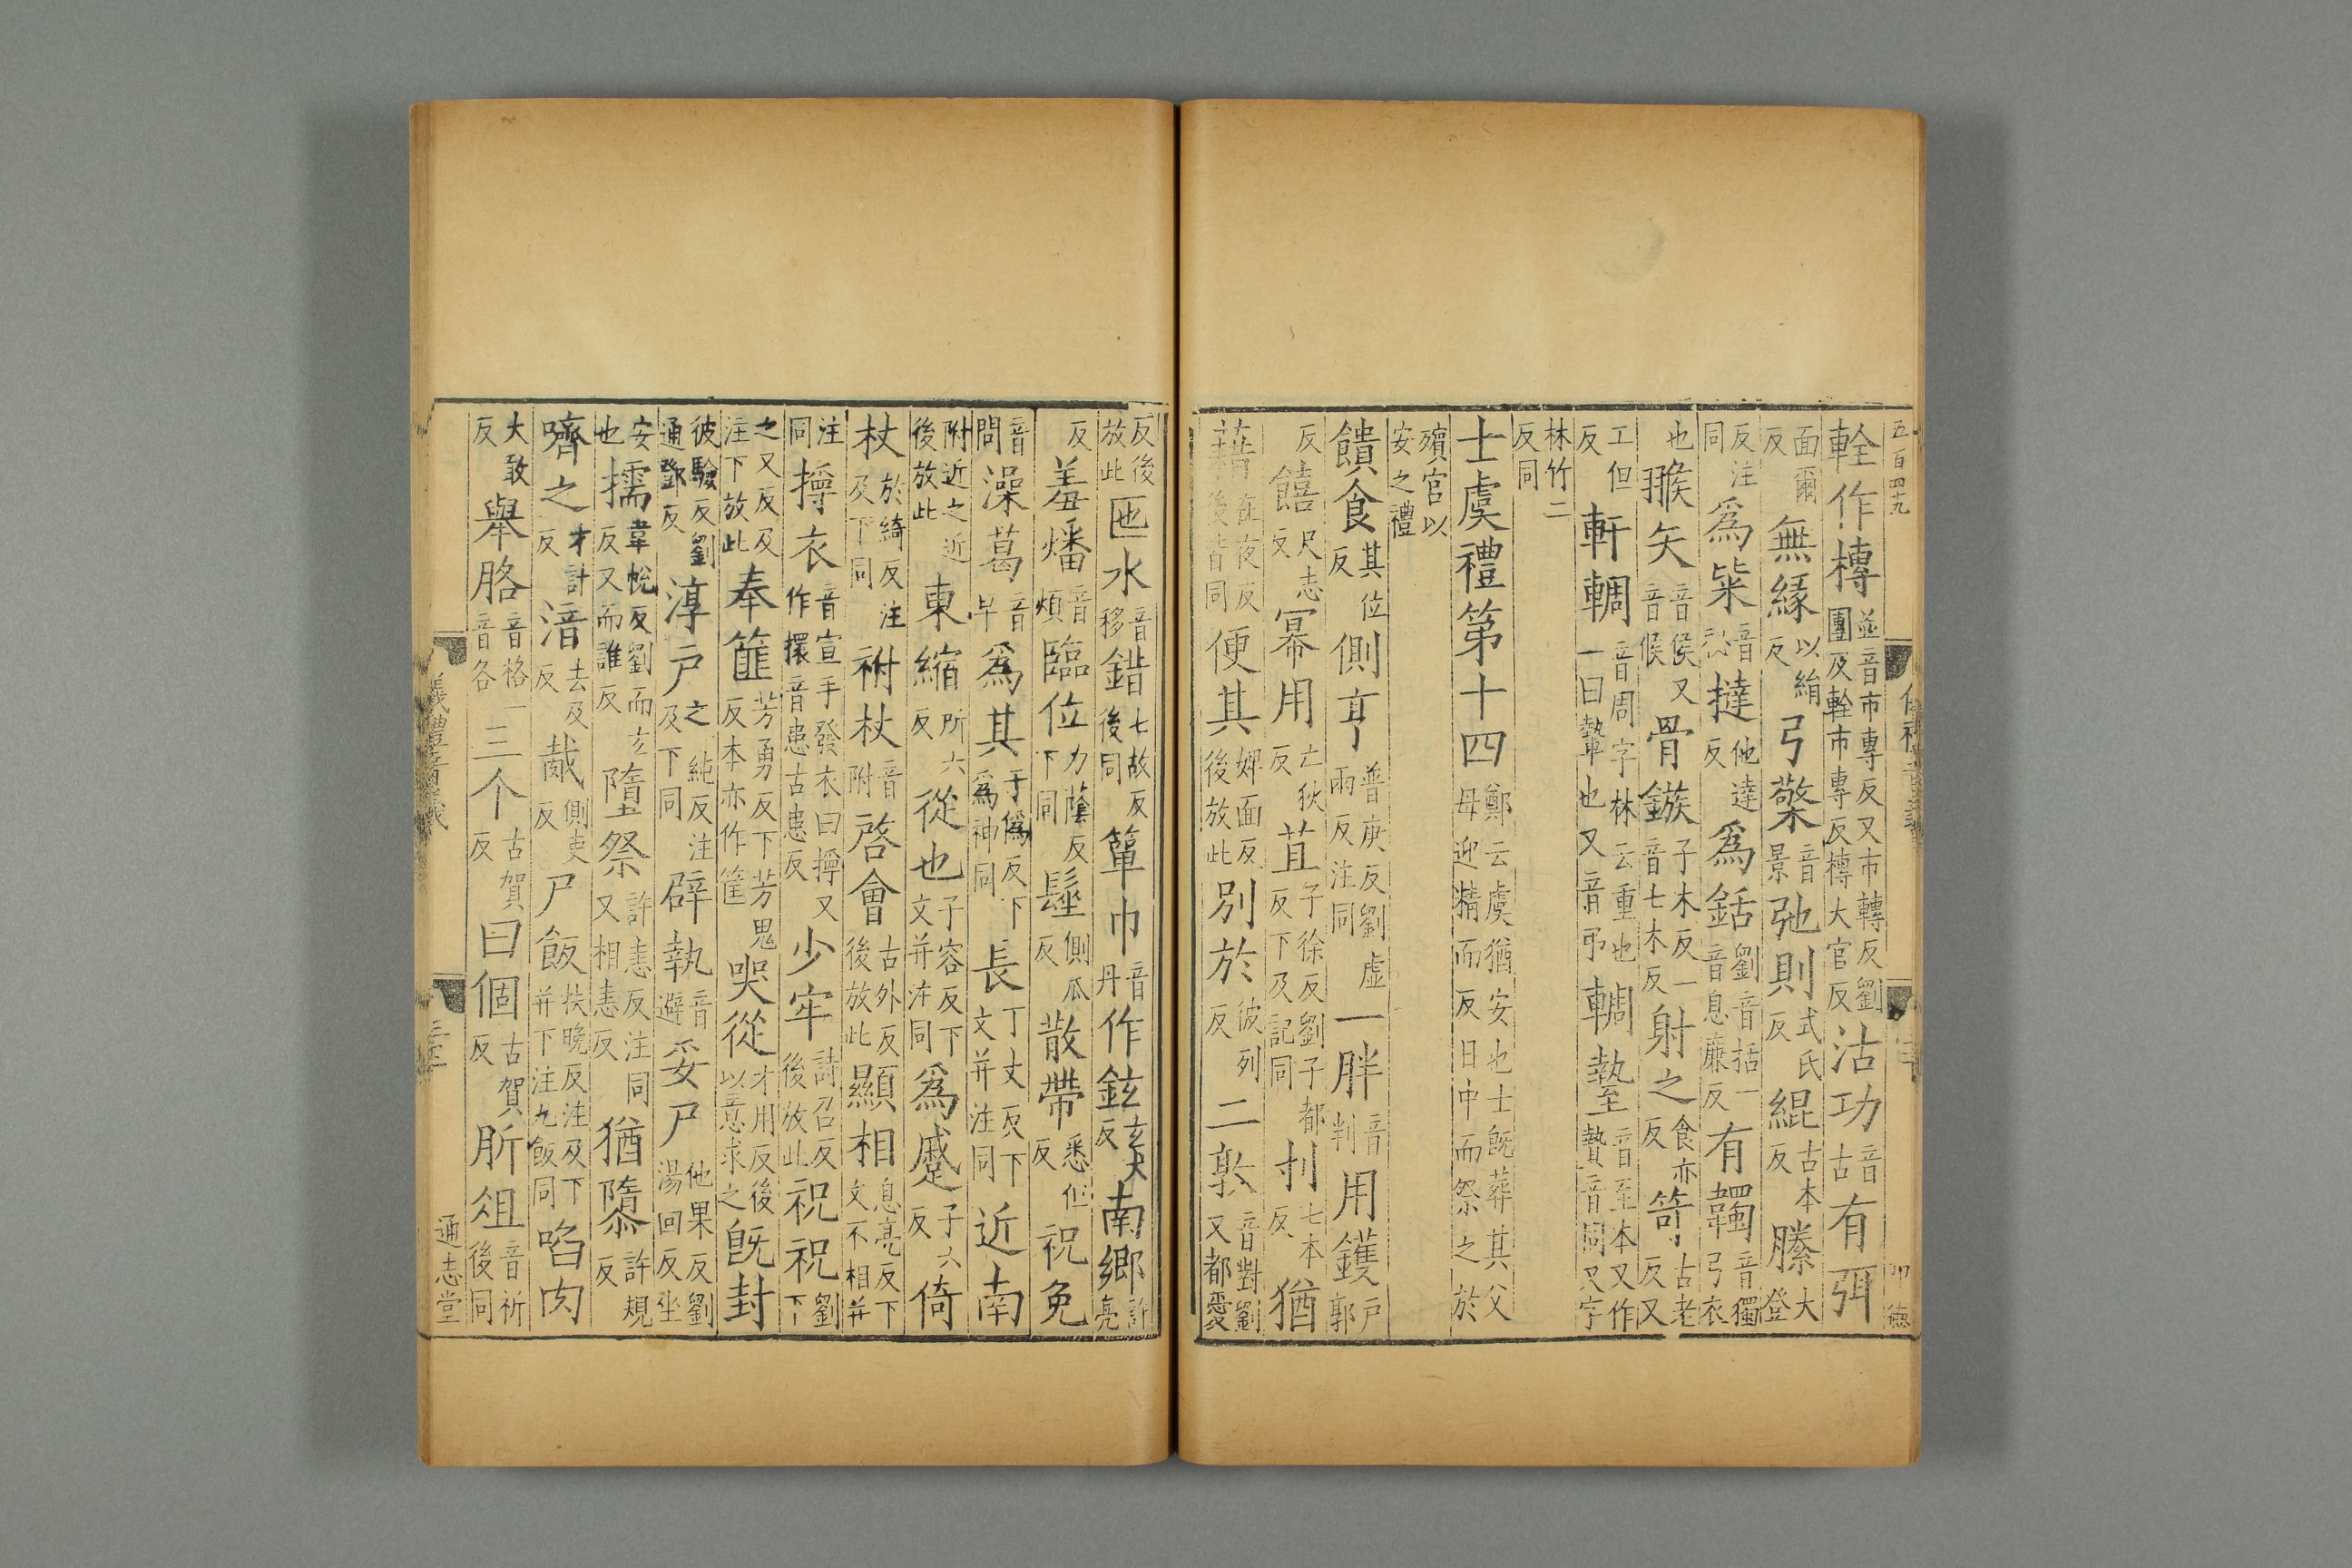 五百四十九
輇作槫並音市專反又市轉反劉團及輇市專反槫大官反沽功音古有弭
面爾反無緣以絹反弓檠音景弛則式氏反緄古本反縢大登
反注同爲柴音撻他達反爲銛劉音括一音息廉反有韣音獨弓衣
也猴矢音侯又音候骨鏃子木反一音七木反射之食亦反笴古老反又
工但反軒輖音周字林云重也一曰蟄也又音弔輖墊音至本又作贄音同又字
林竹二反同
士虞禮第十四鄭云虞猶安也士旣葬其父母迎精而反日中而祭之於
殯宮以安之禮
饋食其位反側亨普庚反劉虛兩反注同一胖音判用鑊戶郭
反饎尺志反冪用亡狄反苴子徐反劉子都反下及記同刌七本反猶
藉在夜反後皆同便其婢面反後放此別於彼列反二敦音對劉又都愛
反後放此匜水音移錯七故反後同簞巾音丹作鉉玄犬反南鄉許亮
反羞燔音煩臨位力蔭反下同髽側瓜反散帶悉但反祝免
音問澡葛音早爲其于僞反下爲神同長丁丈反下文并注同近南
附近之近後放此東縮所六反從也子容反下文并注同爲蹙子六反倚
杖於綺反注及下同祔杖音附啓會古外反後放此顯相息亮反下文不相并
注同撙衣音宣手發衣曰撙又作擐音患古患反少牢詩召反後放此祝祝劉下
之又反及注下放此奉篚芳勇反下芳鬼反本亦作筐哭從才用反後以意求之旣封
彼驗反劉通鄧反淳尸之純反注及下同辟執音避妥尸他果反劉湯回反坐
安也擩韋悅反劉而玄反又而誰反墮祭許恚反注同又相恚反猶隳許規反
嚌之才計反湆去及反胾側吏反尸飯扶晚反注及下并下注九飯同啗肉
大敢反舉胳音格一音各三个古賀反曰個古賀反肵俎音祈後同
儀禮音義
通志堂